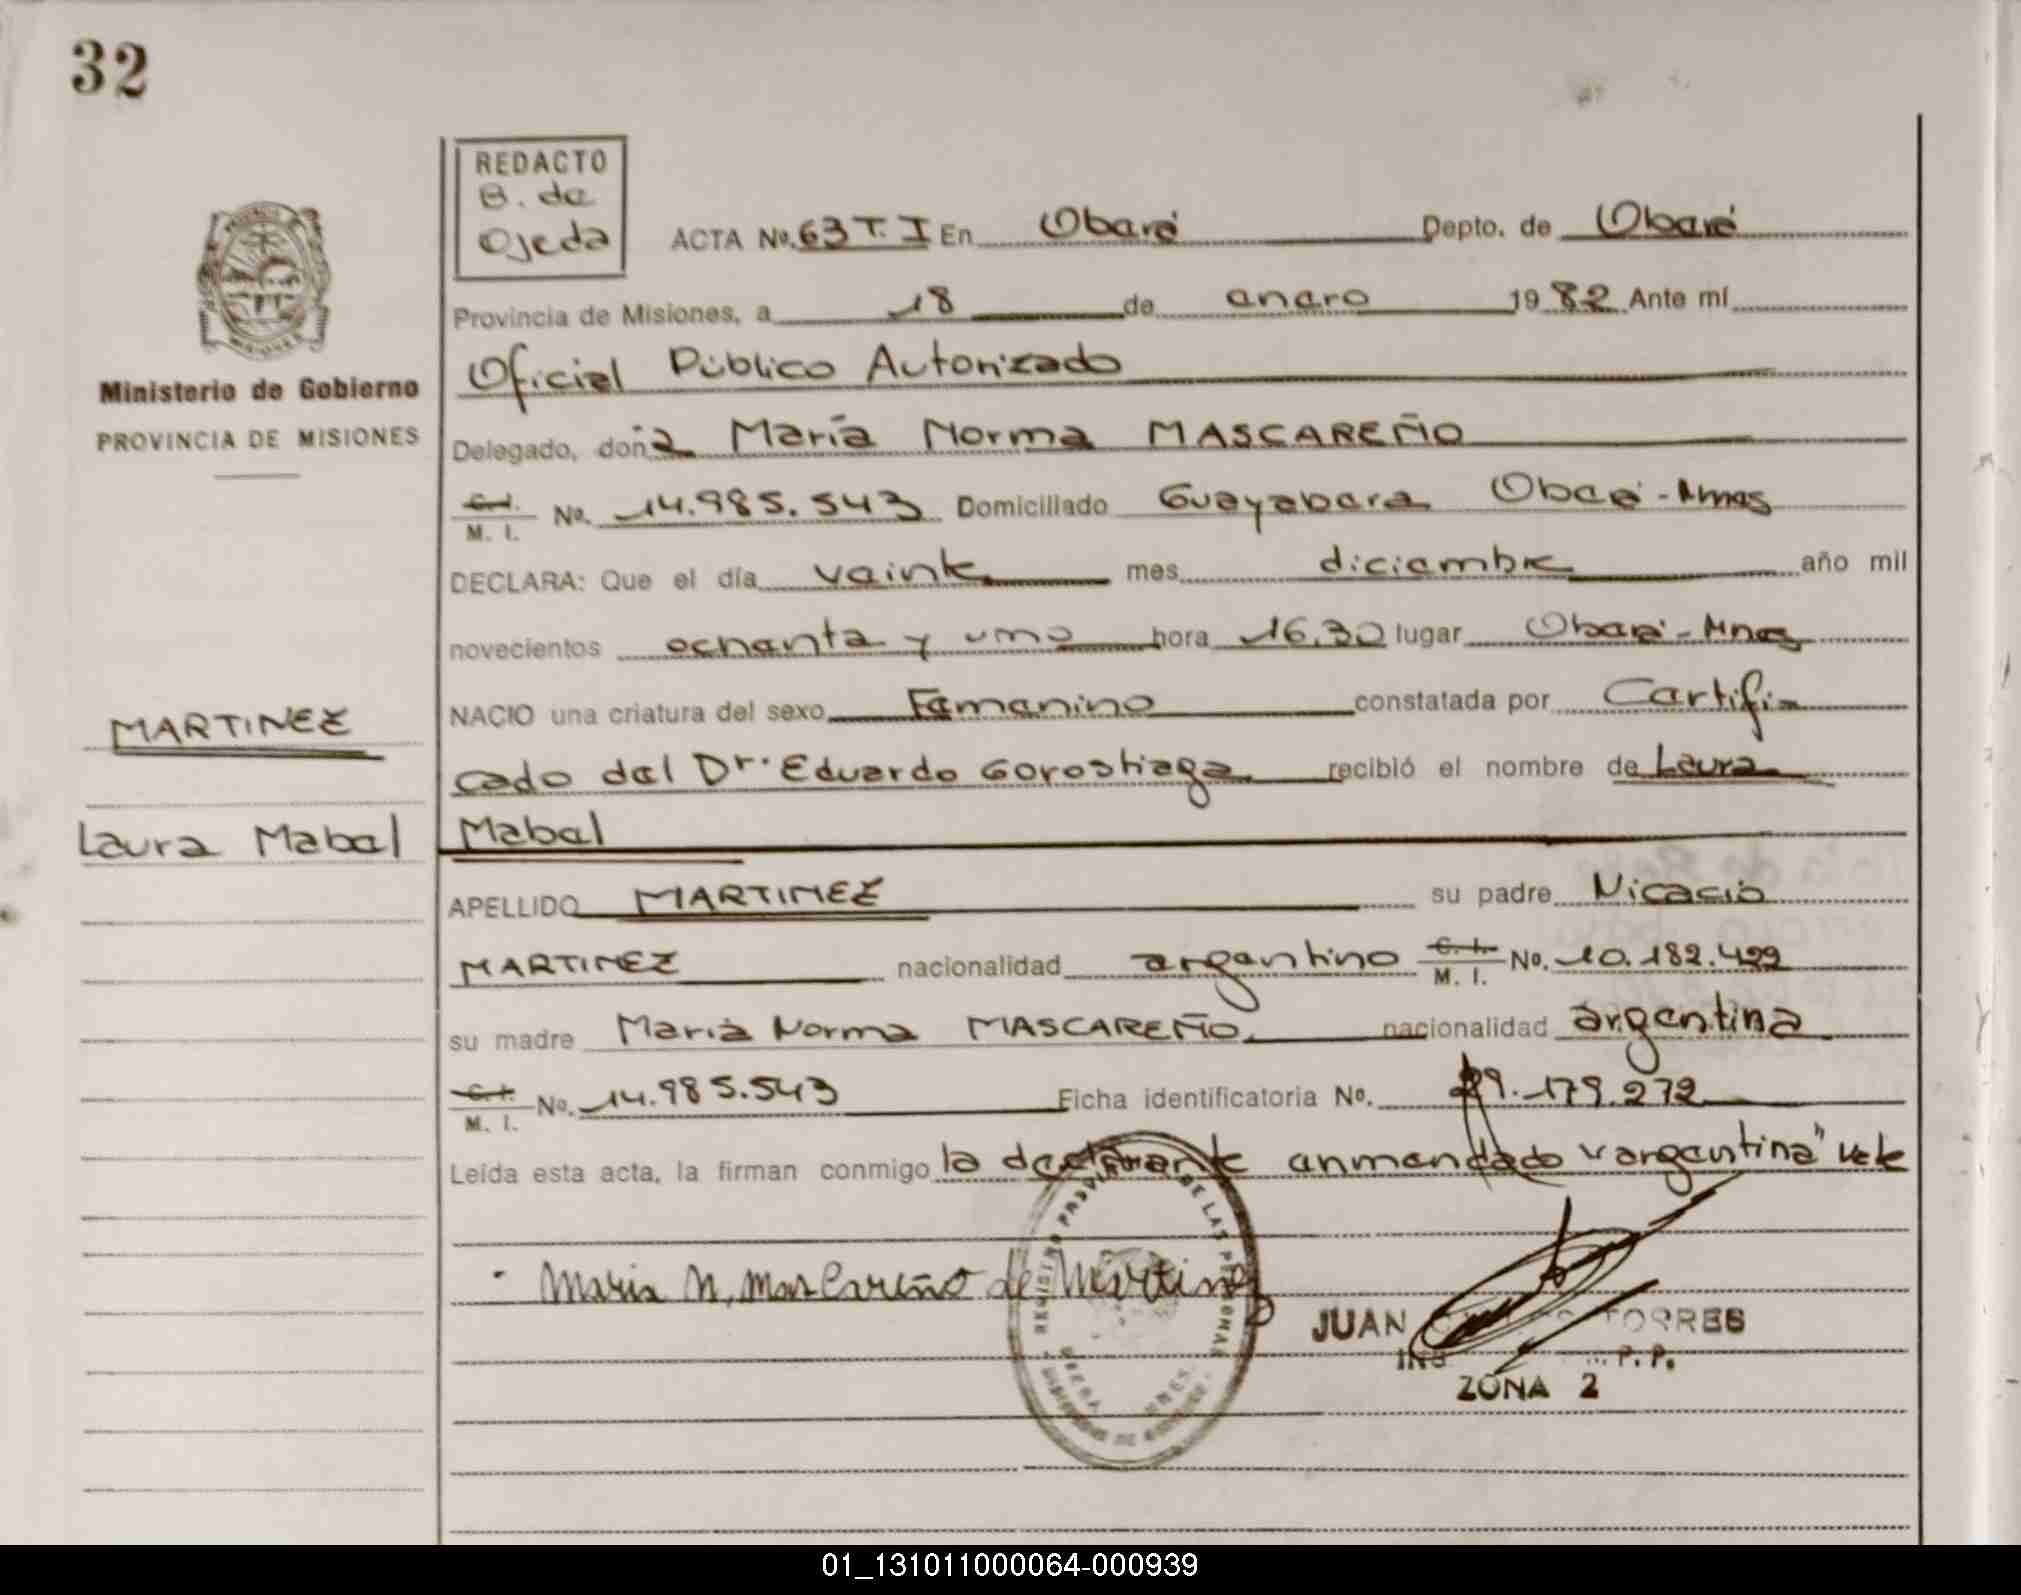 32
REDACTO
B. de
Ojeda
ACTA No. 63 T. I En Oberá Depto. de Oberá
Provincia de Misiones, a 18 de enero 1982 Ante mí
Oficial Público Autorizado
Ministerio de Gobierno
PROVINCIA DE MISIONES
Delegado, doña María Norma MASCAREÑO
C. I.
M. I. No. 14.985.543 Domiciliado Guayabera Oberá - Mnes
DECLARA: Que el día veinte mes diciembre año mil
novecientos ochenta y uno hora 16,30 lugar Oberá - Mnes
NACIO una criatura del sexo Femenino constatada por Certifi=
MARTINEZ
cado del Dr. Eduardo Gorostiaga recibió el nombre de Laura
Laura Mabel
Mabel
APELLIDO MARTINEZ su padre Nicacio
MARTINEZ nacionalidad argentino C. I.
M. I. No. 10.182.499
su madre María Norma MASCAREÑO nacionalidad argentina
C. I.
M. I. No. 14.985.543 Ficha identificatoria No. 29.179.272
Leída esta acta, la firman conmigo la declarante enmendado "argentina" vale
Maria N. Mascareño de Martinez
REGISTRO PROVINCIAL DE LAS PERSONAS
JUAN TORRES
INS P. P.
ZONA 2
01_131011000064-000939